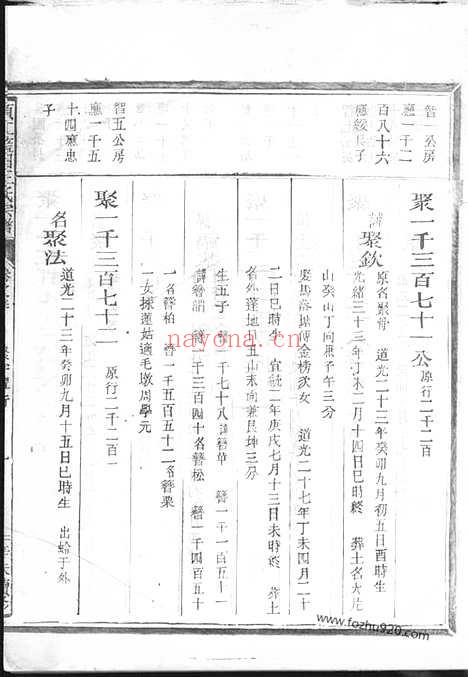 智一公房
應一千二
百八十六
應綏長子
聚一千三百七十一公 原行二千二百
諱聚欽 原名聚滑 道光二十三年癸卯九月初五日酉時生
光緒三十三年丁未二月十四日巳時終 葬土名大片
山癸山丁向兼子午三分
道光二十七年丁未四月二十
二日巳時生 宣統二年庚戌七月十三日未時終 葬土
名外蓬地丑山未向兼艮坤三分
生五子 簪一千七十八諱簪華 簪一千一百五十一
諱簪 簪一千三百四十名簪松 簪一千四百五十
一名簪柏 簪一千五百五十二名簪栗
一女揀蓮姑適毛墩周學元
智五公房
應一千五
十四應忠
子
聚一千三百七十二 原行二千二百一
名聚法 道光二十三年癸卯九月十五日巳時生 出於外
nayona.cn
www.fozhu920.com